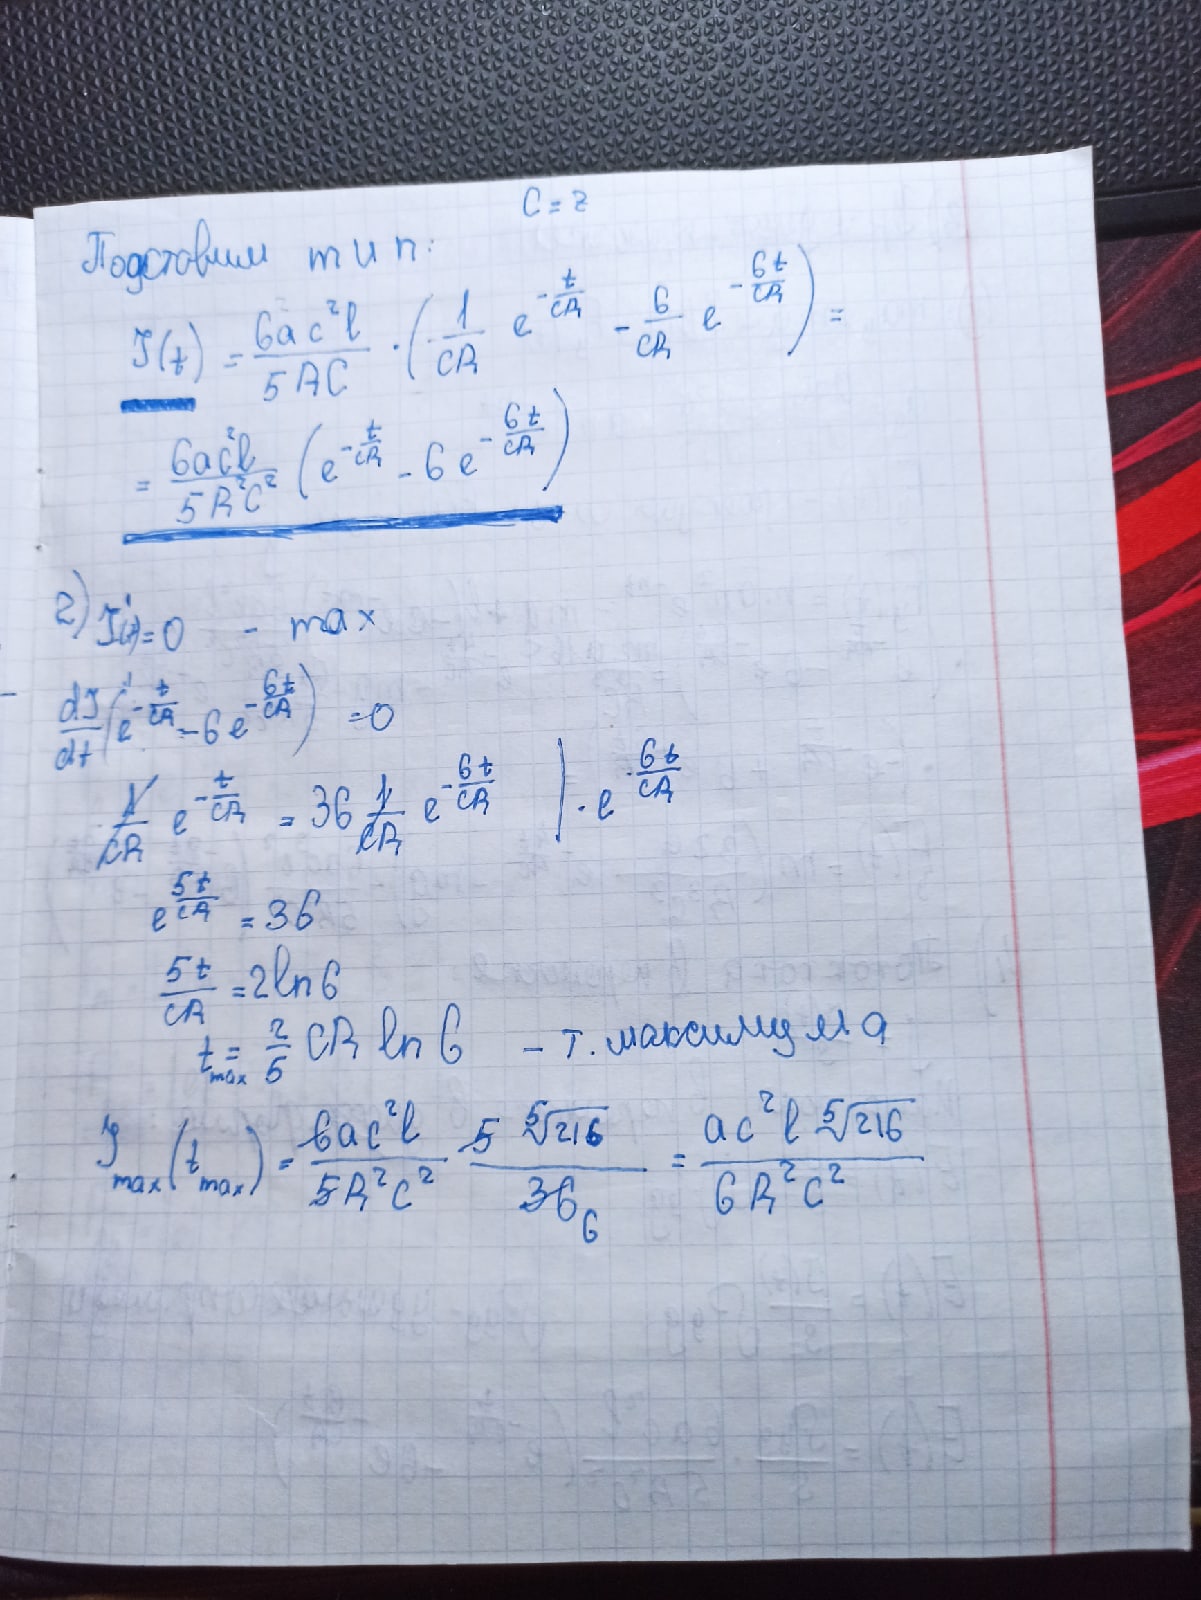 C = z
Подставим m и n:
J(t) = 6ac²l / 5RC · (1/CR e^(-t/CR) - 6/CR e^(-6t/CR)) =
= 6ac²l / 5R²C² (e^(-t/CR) - 6e^(-6t/CR))
2) J'(t) = 0 - max
dJ/dt (e^(-t/CR) - 6e^(-6t/CR)) = 0
1/CR e^(-t/CR) = 36 1/CR e^(-6t/CR) | · e^(6t/CR)
e^(5t/CR) = 36
5t/CR = 2ln6
t_max = 2/5 CR ln 6 - т. максимума
J_max(t_max) = 6ac²l / 5R²C² 5 ⁵√216 / 36 6 = ac²l ⁵√216 / 6R²C²